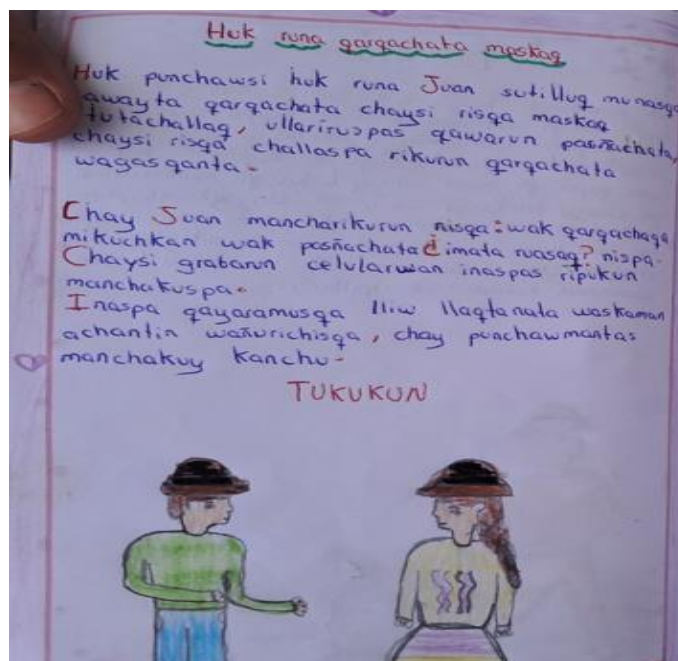 Huk runa qarqachata maskaq
Huk punchawsi huk runa Juan sutilluq munasqa
awayta qarqachata chaysi risqa maskaq
tutachallaq, ullariruspas qawarun pasñachata,
chaysi risqa challaspa rikurun qarqachata
waqasqanta.
Chay Juan mancharikurun nisqa: wak qarqachaqa
mikuchkan wak pasñachata ¿imata ruasaq? nispa.
Chaysi grabarun celularwan inaspas ripukun
manchakuspa.
Inaspa qayaramusqa lliw llaqtanata waskaman
achantin wañurichisqa, chay punchawmantas
manchakuy kanchu.
TUKUKUN